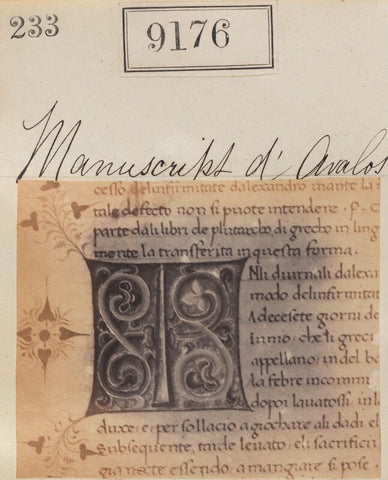 233
9176
Manuscript d'Avalos
cesso delinfirmitate dalexandro inante la
tale defecto non si puote intendere . P. C
parte dali libri de plutarcho di grecho in ling
mente la transferita in questa forma .
Nli diurnali dalexa
modo delinfirmitat
A decesete giorni de
Iunio, che li greci
appellano, in del bo
la febre incomin
dopoi lauatosi, inl
duxe, e per sollacio a giochare ali dadi, el
Subsequente, tarde leuato, eli sacrifici
gia nocte essendo, a mangiare si pose .